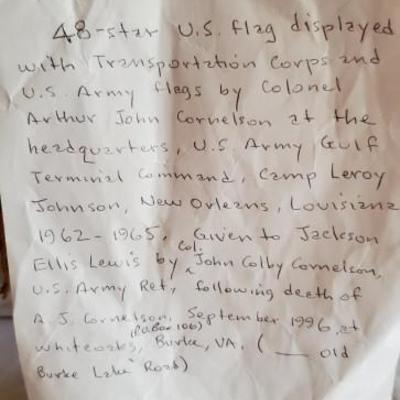 48-star U.S. flag displayed
with Transportation Corps and
U.S. Army flags by Colonel
Arthur John Cornelson at the
headquarters, U.S. Army Gulf
Terminal Command, Camp Leroy
Johnson, New Orleans, Louisiana
1962-1965. Given to Jackson
Ellis Lewis by Col. John Colby Cornelson,
U.S. Army Ret, following death of
A. J. Cornelson, September 1996, at
(age 106)
Burke, VA. ( ___ old
Burke Lake Road)